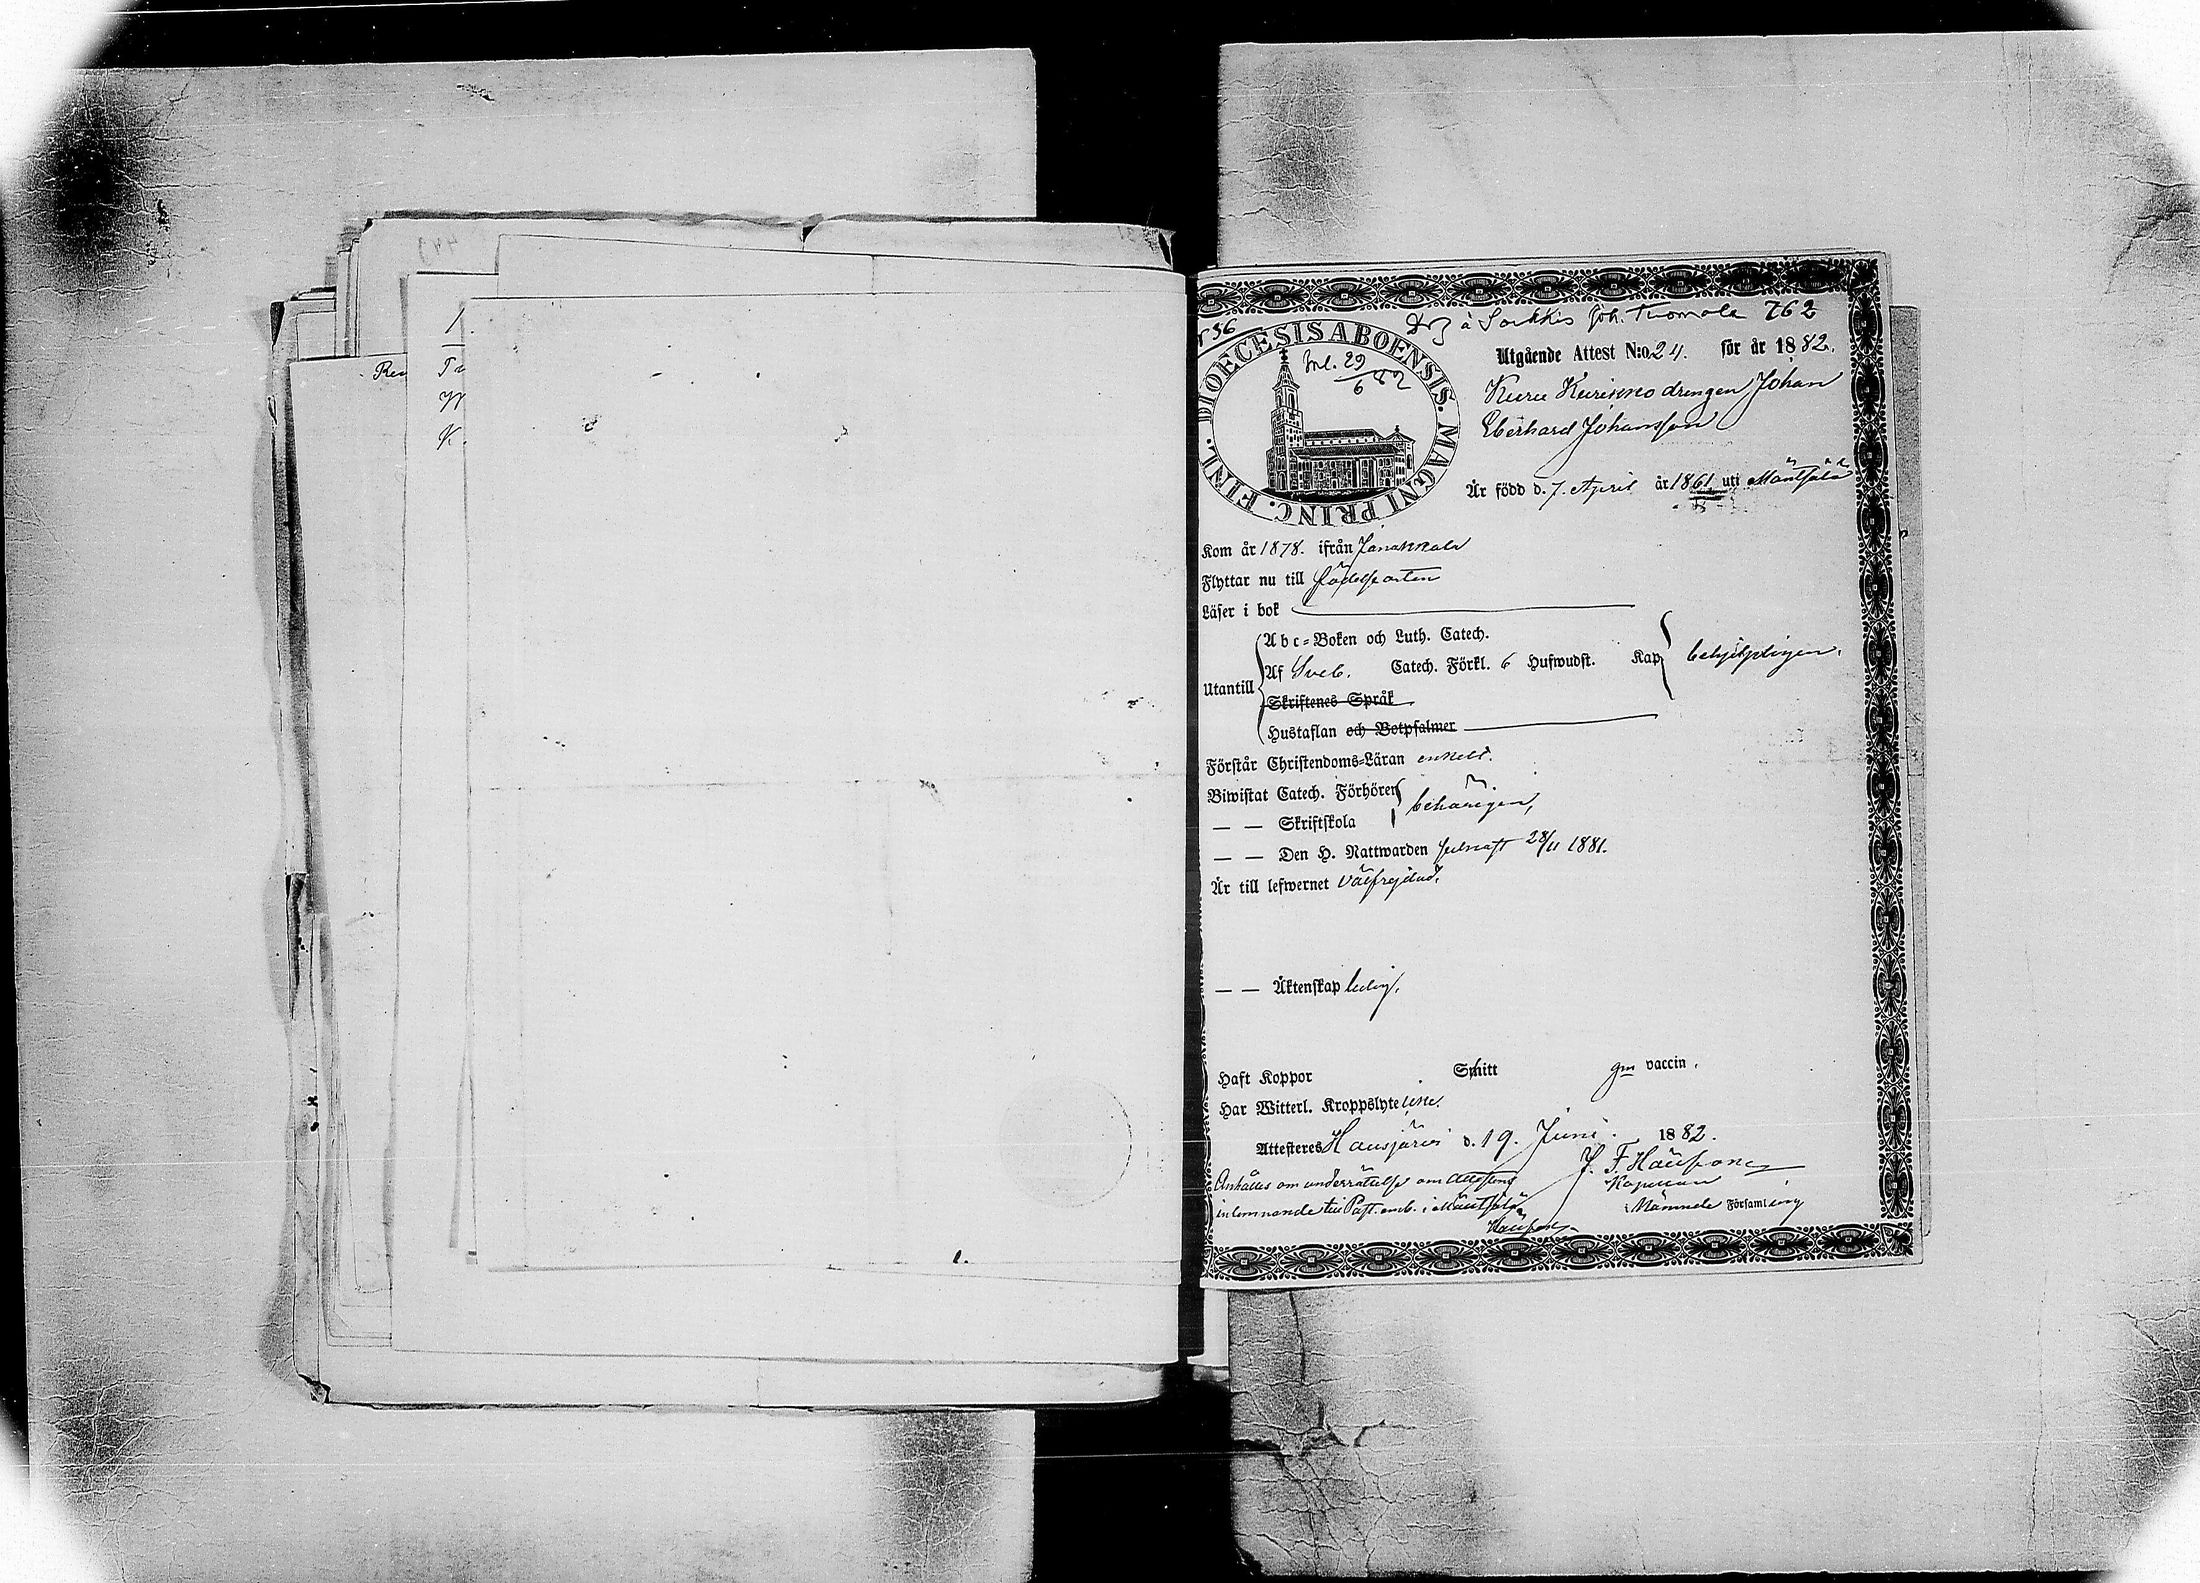 443
1.
Rev
Tu
K.
Drg å Sarkkis Joh. Tuomola 762
536
DIOECESIS ABOENSIS. MAGNI PRINC. FINL.
Inl. 29/6 82
Utgående Attest N:o 24. för år 1882.
drengen Johan
Eberhard Johansson
Är född d. 7. April år 1861 uti Mäntsälä
Kom år 1878. ifrån Janakkala
Flyttar nu till födelseorten
Läser i bok
Abc-Boken och Luth. Catech.
Utantill
Af Sveb. Catech. Förkl. 6 Hufwudst. Kap behjelpligen.
Skriftenes Språk
Hustaflan och Botpsalmer
Förstår Christendoms-Läran enkelt.
Biwistat Catech. Förhören behörigen,
— — Skriftskola
— — Den H. Nattwarden sednast 28/11 1881.
Är till lefwernet välfrejdad.
— — Äktenskap ledig.
Haft Koppor Smitt gm vaccin.
Har Witterl. Kroppslyte icke.
Attesteras Hausjärvi d. 19. Juni. 1882.
Anhålles om underrättelse om attestens J. F.
inlemnande till Past. emb. i Mäntsälä Kapellan
i Nämnde Församling